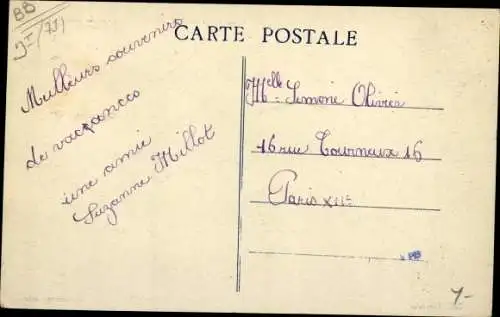 BB
CARTE POSTALE
Meilleurs souvenirs
de vacances
une amie
Suzanne Millot
Mlle Simone Olivier
16 rue Tourneux 16
Paris XIIe
7-